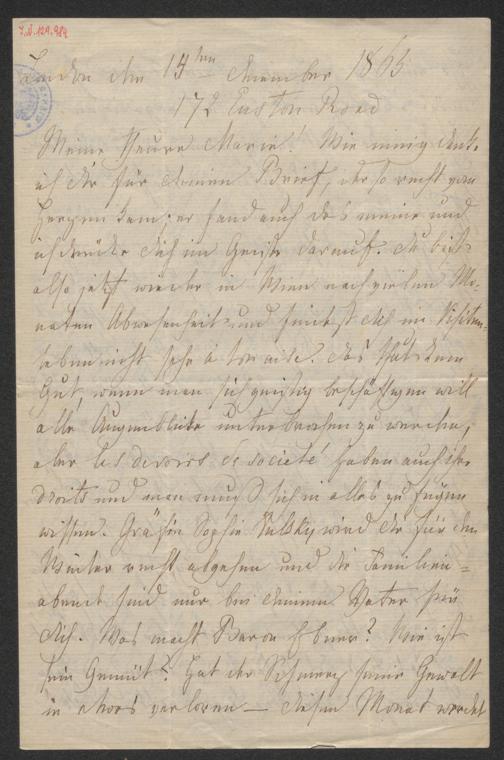 I.N. 129.989
London den 14ten Dezember 1865
172 Euston Road
Meine theure Marie! Wie innig danke
ich Dir für Deinen Brief, der so recht vom
Herzen kam; er fand auch das meine und
ich drücke Dich im Geiste darauf. Du bist
also jetzt wieder in Wien nach vielen Mo-
naten Abwesenheit und findest Dich im Visiten-
leben nicht sehr à ton aise. Das thut kein
Gut, wenn man sich geistig beschäftigen will
alle Augenblicke unterbrochen zu werden,
aber les devoirs de société haben auch ihre
droits und man muß sich in alles zu fügen
wissen. Gräfin Sophie wird Dir für den
Winter recht abgehen und die Familien-
abende sind nur bei Deinem Vater für
Dich. Was macht Baron Ebner? Wie ist
sein Gemüt? Hat der Schmerz seine Gewalt
in etwas verloren — diesen Monat werdet